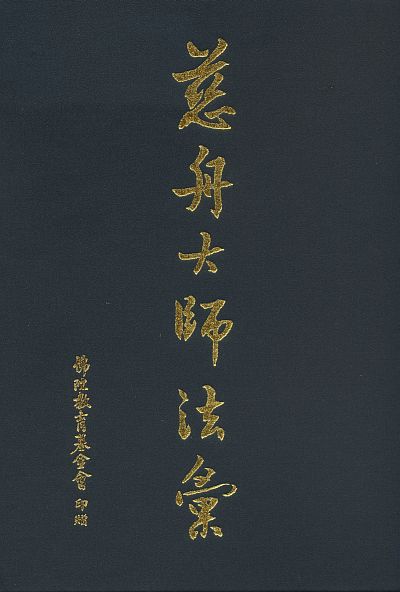 慈舟大師法彙
佛陀教育基金會 印贈